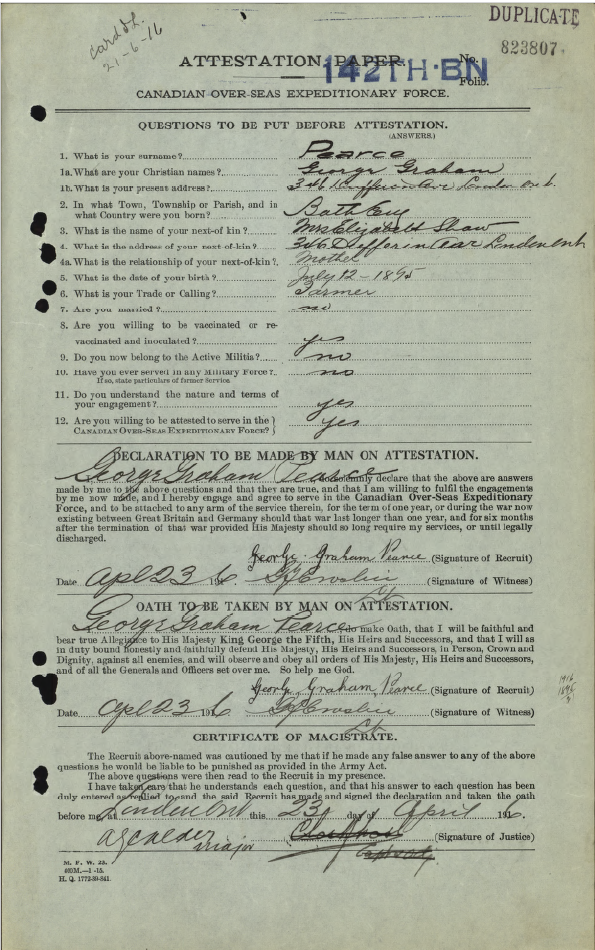 DUPLICATE
card H.
21-6-16
823807.
ATTESTATION PAPER. No.
142TH·BN
Folio.
CANADIAN OVER-SEAS EXPEDITIONARY FORCE.
QUESTIONS TO BE PUT BEFORE ATTESTATION.
(ANSWERS.)
1. What is your surname? Pearce
1a. What are your Christian names? George Graham
1b. What is your present address? 346 Dufferin Ave London Ont.
2. In what Town, Township or Parish, and in
what Country were you born? Bath Eng
3. What is the name of your next-of kin? Mrs Elizabeth Shaw
4. What is the address of your next-of-kin? 346 Dufferin Ave London Ont
4a. What is the relationship of your next-of-kin? Mother
5. What is the date of your birth? July 12 - 1895
6. What is your Trade or Calling? Farmer
7. Are you married? no
8. Are you willing to be vaccinated or re-
vaccinated and inoculated? yes
9. Do you now belong to the Active Militia? no
10. Have you ever served in any Military Force? no
If so, state particulars of former Service
11. Do you understand the nature and terms of
your engagement? yes
12. Are you willing to be attested to serve in the
CANADIAN OVER-SEAS EXPEDITIONARY FORCE? yes
DECLARATION TO BE MADE BY MAN ON ATTESTATION.
I, George Graham Pearce, do solemnly declare that the above are answers
made by me to the above questions and that they are true, and that I am willing to fulfil the engagements
by me now made, and I hereby engage and agree to serve in the Canadian Over-Seas Expeditionary
Force, and to be attached to any arm of the service therein, for the term of one year, or during the war now
existing between Great Britain and Germany should that war last longer than one year, and for six months
after the termination of that war provided His Majesty should so long require my services, or until legally
discharged.
George Graham Pearce (Signature of Recruit)
Date Apl 23 1916 (Signature of Witness)
OATH TO BE TAKEN BY MAN ON ATTESTATION.
I, George Graham Pearce, do make Oath, that I will be faithful and
bear true Allegiance to His Majesty King George the Fifth, His Heirs and Successors, and that I will as
in duty bound honestly and faithfully defend His Majesty, His Heirs and Successors, in Person, Crown and
Dignity, against all enemies, and will observe and obey all orders of His Majesty, His Heirs and Successors,
and of all the Generals and Officers set over me. So help me God.
George Graham Pearce (Signature of Recruit)
Date Apl 23 1916 (Signature of Witness)
CERTIFICATE OF MAGISTRATE.
The Recruit above-named was cautioned by me that if he made any false answer to any of the above
questions he would be liable to be punished as provided in the Army Act.
The above questions were then read to the Recruit in my presence.
I have taken care that he understands each question, and that his answer to each question has been
duly entered as replied to, and the said Recruit has made and signed the declaration and taken the oath
before me, at London Ont this 23 day of April 1916
Major (Signature of Justice)
M. F. W. 23.
H. Q. 1772-39-841.